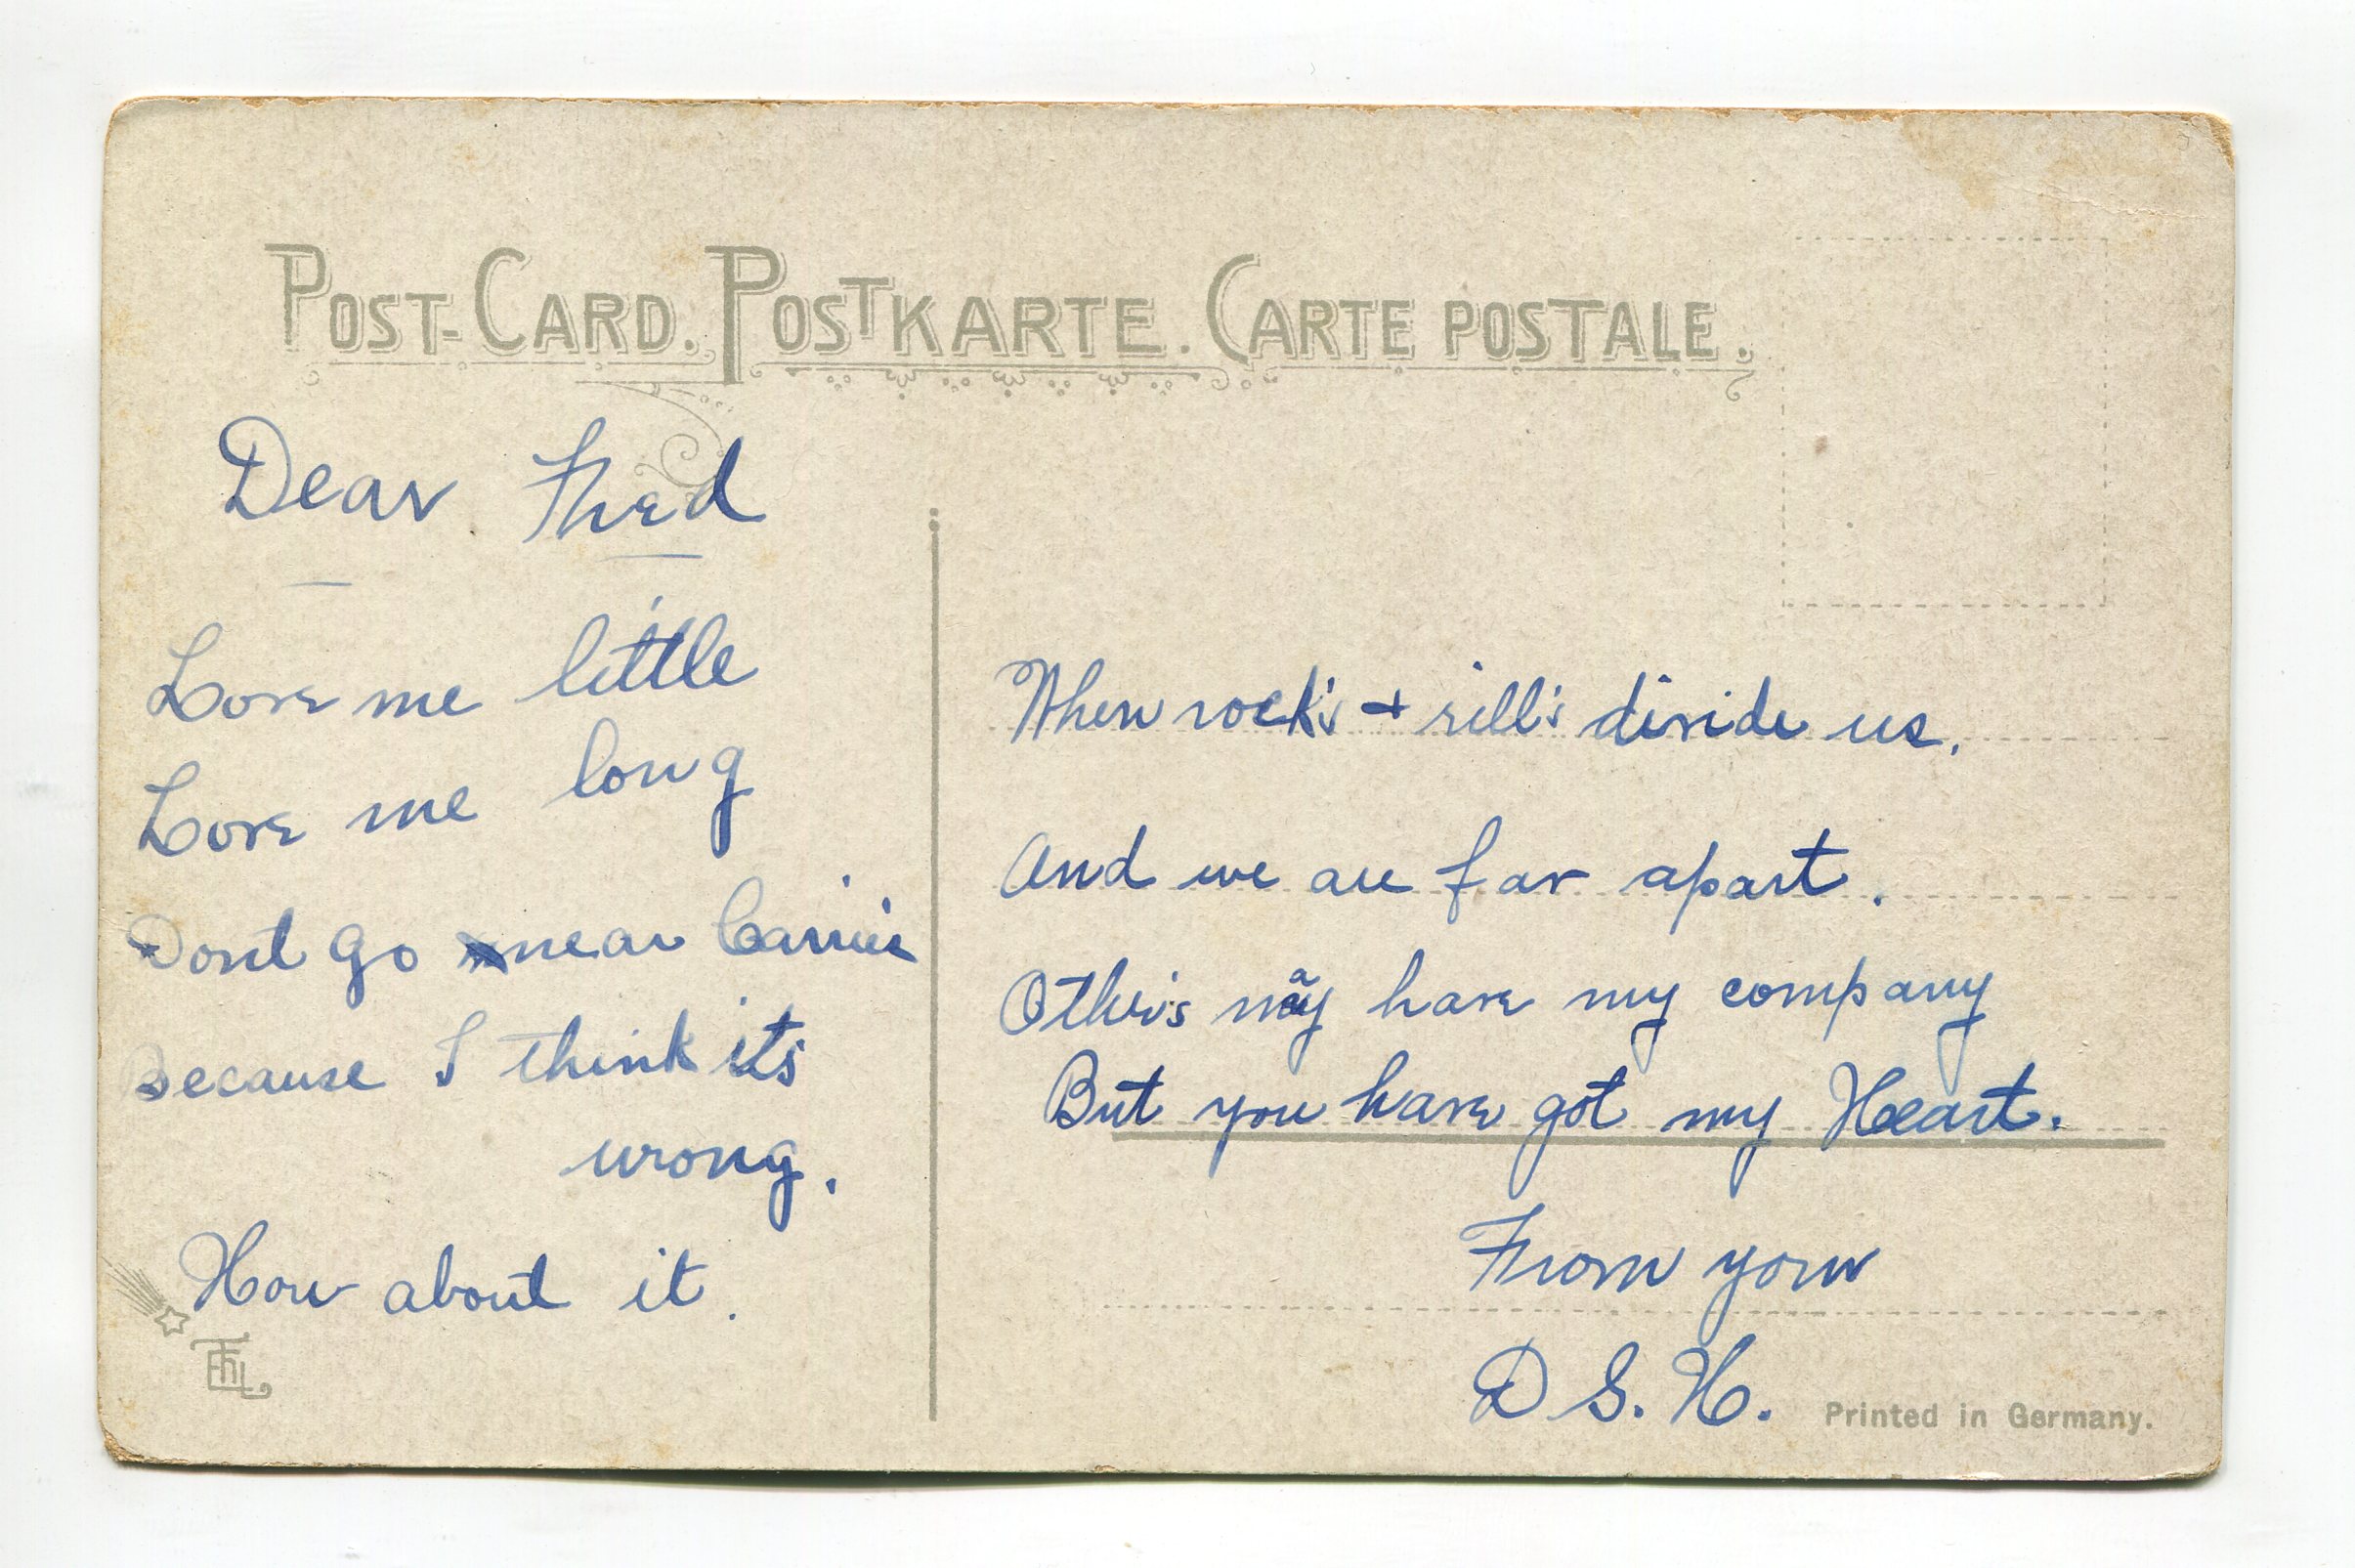 POST-CARD. POSTKARTE. CARTE POSTALE.
Dear Fred
Love me little
Love me long
Dont go near Carrie
Because I think it's
wrong.
How about it.
When rock's + rill's divide us.
And we are far apart.
Other's may have my company
But you have got my Heart.
From your
D S. H.
Printed in Germany.